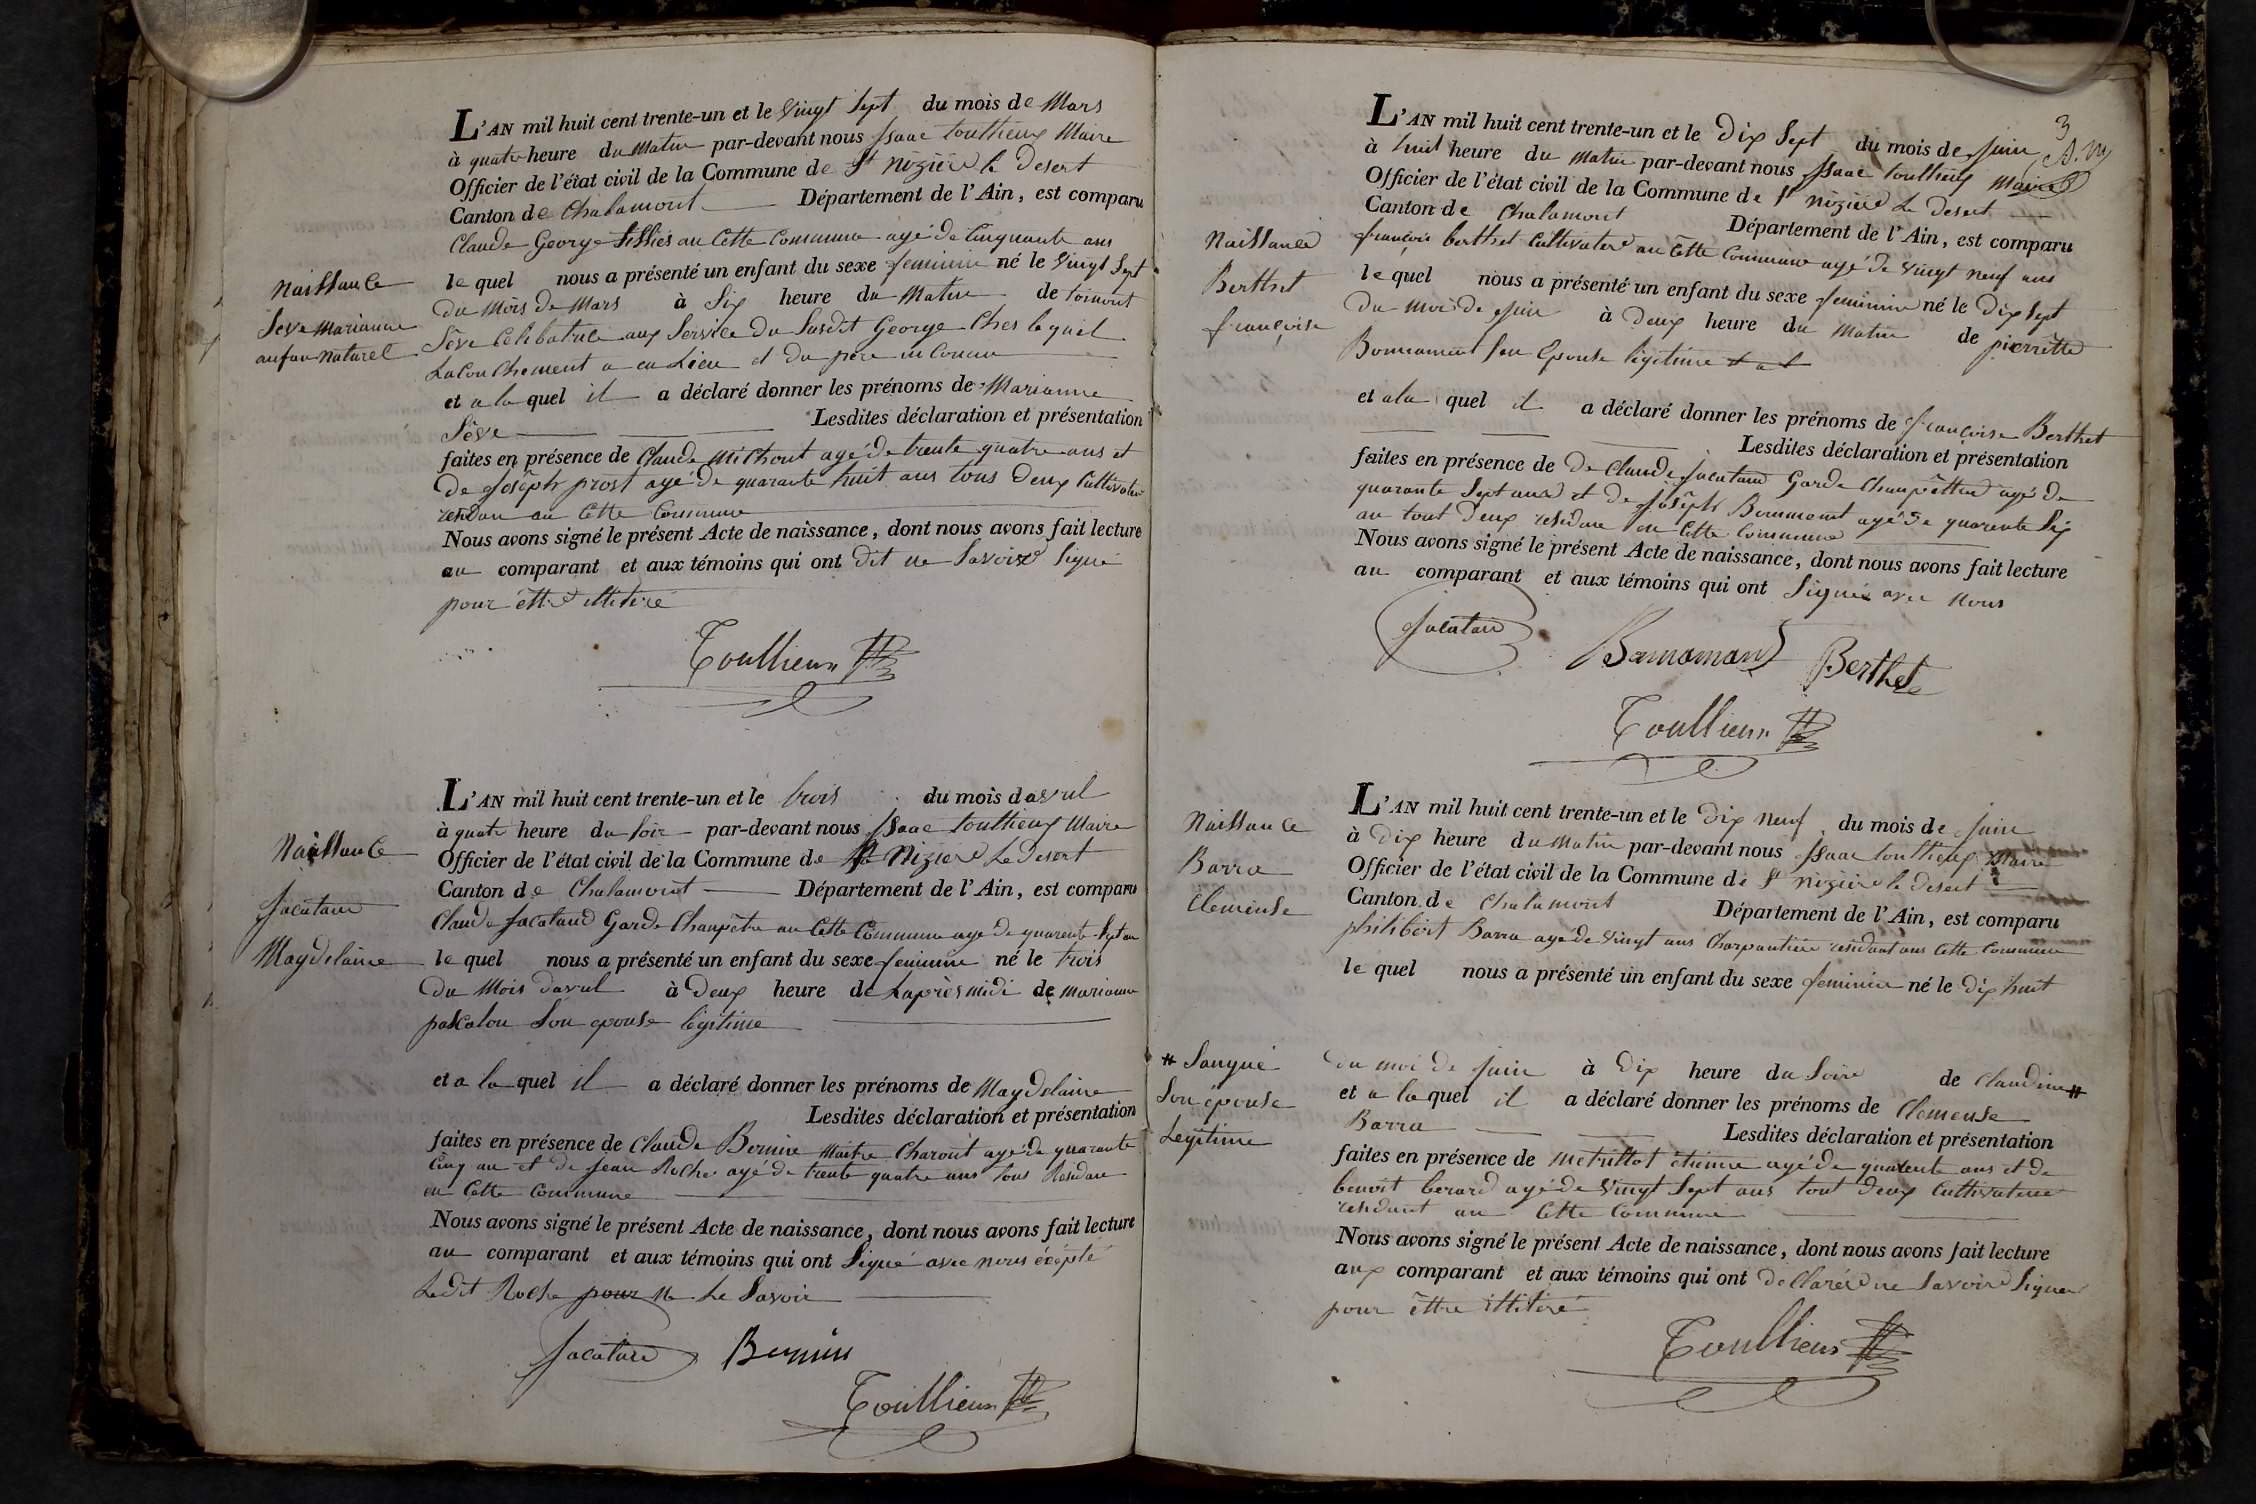 L'AN mil huit cent trente-un et le vingt sept du mois de Mars
à quatre heure du Matin par-devant nous Isaac touthieux Maire
Officier de l'état civil de la Commune de St Niziere le Desert
Canton de Chalamont Département de l'Ain, est comparu
Claude George au Cette Commune agé de Cinquante ans
le quel nous a présenté un enfant du sexe feminin né le vingt Sept
du Mois de Mars à Six heure du Matin de toinont
Sève Celibatrice aux Service du Susdit George Ches lequel
Lacouchement a eu Lieu et du père inConnu
et a la quel il a déclaré donner les prénoms de Marianne
Sève Lesdites déclaration et présentation
faites en présence de Claude Michont agé de trente quatre ans et
de Joseph prost agé de quarante huit ans tous Deux Cultivater
residan au Cette Commune
Nous avons signé le présent Acte de naissance, dont nous avons fait lecture
au comparant et aux témoins qui ont dit ne Savoire Signé
pour être illitéré
Toullieux
Naissance
Seve Marianne
anfan naturel
L'AN mil huit cent trente-un et le trois du mois davril
à quatr heure du Soir par-devant nous Isaac touthieux Maire
Officier de l'état civil de la Commune de St Niziere Le Desert
Canton de Chalamont Département de l'Ain, est comparu
Claude Jacataud Garde Champêtre au Cette Commune age de quarente Sept an
le quel nous a présenté un enfant du sexe feminin né le trois
du Mois davril à Deux heure de Laprès midi de Marianne
pascalou Son epouse légitime
et a la quel il a déclaré donner les prénoms de Magdelaine
Lesdites déclaration et présentation
faites en présence de Claude Bernin Maitre Charont agé de quarante
Cinq an et de Jean Roche agé de trente quatre ans tous Residan
en Cette Commune
Nous avons signé le présent Acte de naissance, dont nous avons fait lecture
au comparant et aux témoins qui ont Signé avec nous éxépté
Ledit Roche pour ne Le Savoir
Jacataud Bernin
Toullieux
Naissance
Jacataud
Magdelaine
3
L'AN mil huit cent trente-un et le Dix Sept du mois de Juin
à huit heure du Matin par-devant nous Isaac touthieux Maire
Officier de l'état civil de la Commune de St Niziere Le Desert
Canton de Chalamont Département de l'Ain, est comparu
françois berthet Cultivater au Cette Commune agé de vingt neuf ans
le quel nous a présenté un enfant du sexe feminin né le Dix Sept
du moi de Juin à Deux heure du Matin de pierrette
Bonnamont Son Epouse légitime
et a la quel il a déclaré donner les prénoms de françoise Berthet
Lesdites déclaration et présentation
faites en présence de De Claude Jacataud Garde Champêttre agé de
quarante Sept ans et de Joseph Bonnamont agé de quarente Six
an tout Deux residan en Cette Commune
Nous avons signé le présent Acte de naissance, dont nous avons fait lecture
au comparant et aux témoins qui ont Signé avec Nous
Jacataud
Bonnamont Berthet
Toullieux
Naissance
Berthet
françoise
L'AN mil huit cent trente-un et le Dix Neuf du mois de Juin
à Dix heure du Matin par-devant nous Isaac touthieux Maire
Officier de l'état civil de la Commune de St Niziere le Desert
Canton de Chalamont Département de l'Ain, est comparu
philibert Barra agé de vingt ans Charpantier residant ans Cette Commune
le quel nous a présenté un enfant du sexe feminin né le Dix huit
du moi de Juin à Dix heure du Soire de Claudine #
et a la quel il a déclaré donner les prénoms de Clemense
Barra Lesdites déclaration et présentation
faites en présence de Metrillot étienne agé de quarente ans et de
benoit berard agé de vingt Sept ans tout Deux Cultivateur
residant au Cette Commune
Nous avons signé le présent Acte de naissance, dont nous avons fait lecture
aux comparant et aux témoins qui ont déClaré ne Savoire Signer
pour êttre illitéré
Toullieux
Naissance
Barra
Clemense
# Sangué
Son épouse
Legitime